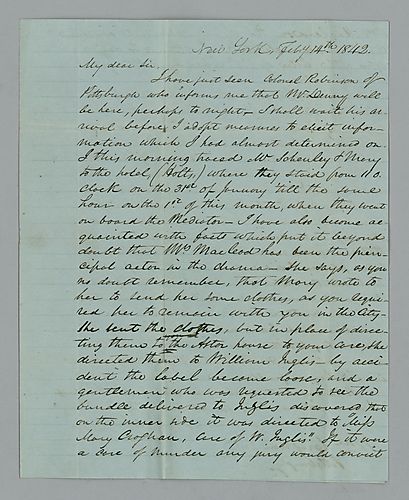 New York, Feby 14th 1842.
My dear Sir.
I have just seen Colonel Robinson of
Pittsburgh who informs me that Mr Denny will
be here, perhaps to night – I shall wait his ar-
rival before I adopt measures to elicit infor-
mation which I had almost determined on.
I this morning traced Mr Schenley & Mary
to the hotel, (Holts,) where they staid from 11 o.
clock on the 31st of January till the same
hour on the 1st of this month, when they went
on board the Mediator – I have also become ac
quainted with facts which put it beyond
doubt that Mrs Macleod has been the prin-
cipal actor in the drama – She says, as you
no doubt remember, that Mary wrote to
her to send her some clothes, as you requi-
red her to remain with you in the City –
She sent the clothes, but in place of direc-
ting them to the Astor house to your care, she
directed them to William Inglis – by acci
dent the label became loose, and a
gentleman who was requested to see the
bundle delivered to Inglis discovered that
on the inner side it was directed to "Miss
Mary Croghan, Care of W. Inglis" If it were
a case of murder any jury would convict